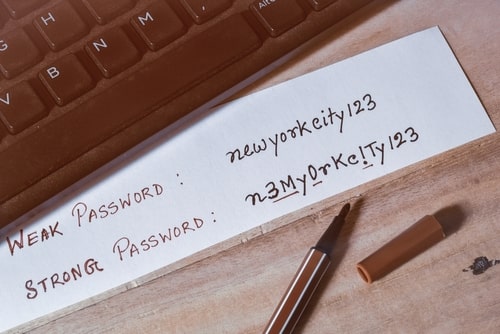 G H N M Alt
V B
WEAK PASSWORD : newyorkcity123
STRONG PASSWORD : n3MyOrKc!Ty123